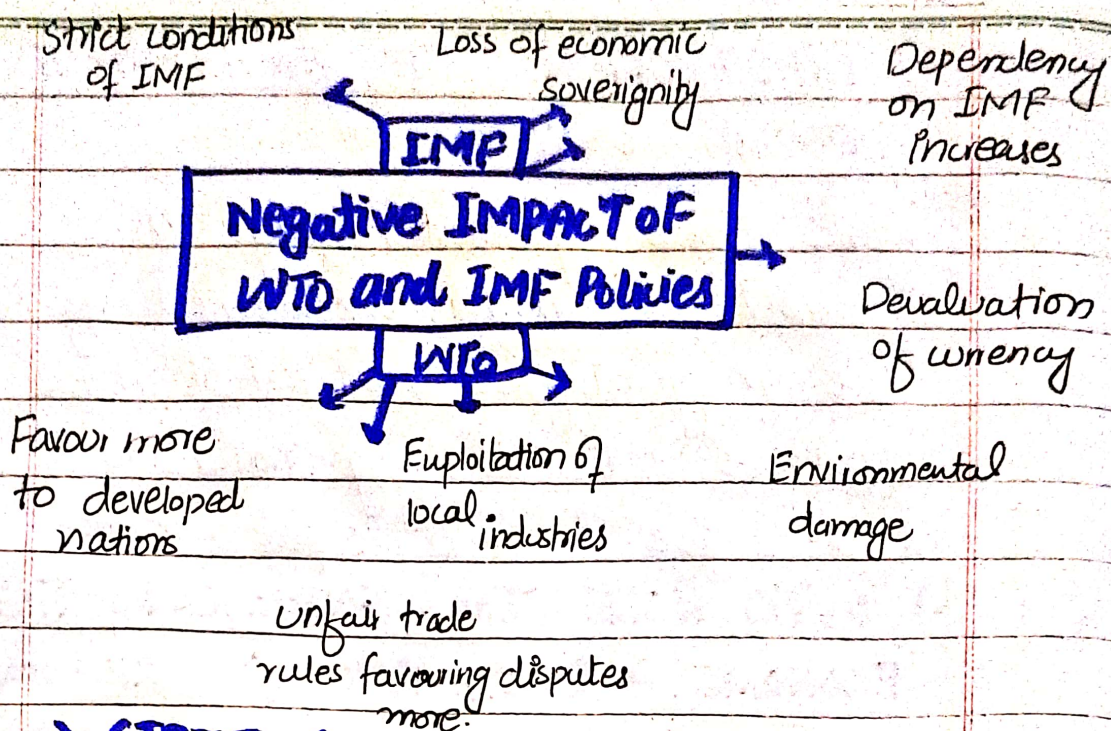 Strict conditions
of IMF
Loss of economic
soverignity
Dependency
on IMF
increases
IMF
Negative IMPACT OF
WTO and IMF Policies
Devaluation
of currency
WTO
Favour more
to developed
nations
Exploitation of
local industries
Environmental
damage
unfair trade
rules favouring disputes
more.